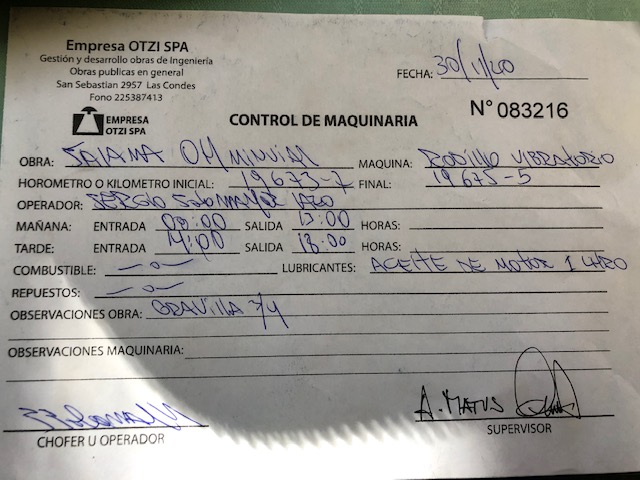 Empresa OTZI SPA
Gestión y desarrollo obras de Ingeniería
Obras publicas en general
San Sebastian 2957 Las Condes
Fono 225387413
FECHA: 30/11/20
EMPRESA
OTZI SPA
CONTROL DE MAQUINARIA
N° 083216
OBRA: MAQUINA: RODILLO VIBRATORIO
HOROMETRO O KILOMETRO INICIAL: 19673-7 FINAL: 19675-5
OPERADOR: SERGIO
MAÑANA: ENTRADA 08:00 SALIDA 13:00 HORAS:
TARDE: ENTRADA 14:00 SALIDA 18:00 HORAS:
COMBUSTIBLE: —o— LUBRICANTES: ACEITE DE MOTOR 1 LITRO
REPUESTOS: —o—
OBSERVACIONES OBRA: GRAVILLA 3/4
OBSERVACIONES MAQUINARIA:
A. MATUS
CHOFER U OPERADOR SUPERVISOR